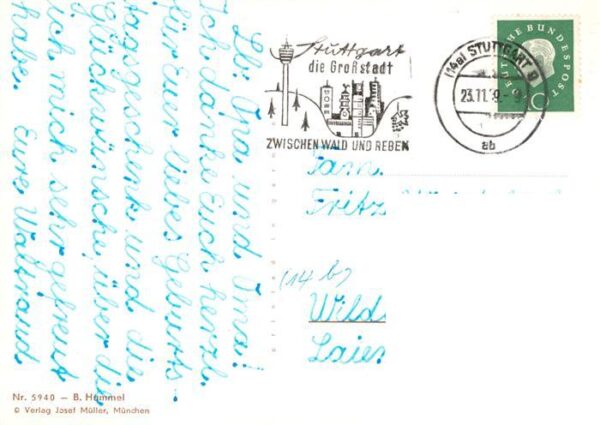 Lb. Opa und Oma!
Ich danke Euch herzl.
für euer liebes Geburts-
tagsgeschenk und die
Glückwünsche, über die
ich mich sehr gefreut
habe. Eure Waltraud
Stuttgart
die Großstadt
ZWISCHEN WALD UND REBEN
(14a) STUTTGART 9
23.11.59-9
ab
DEUTSCHE BUNDESPOST
10
Fam.
Fritz
(14 b)
Wild
Laie
Nr. 5940 – B. Hummel
© Verlag Josef Müller, München